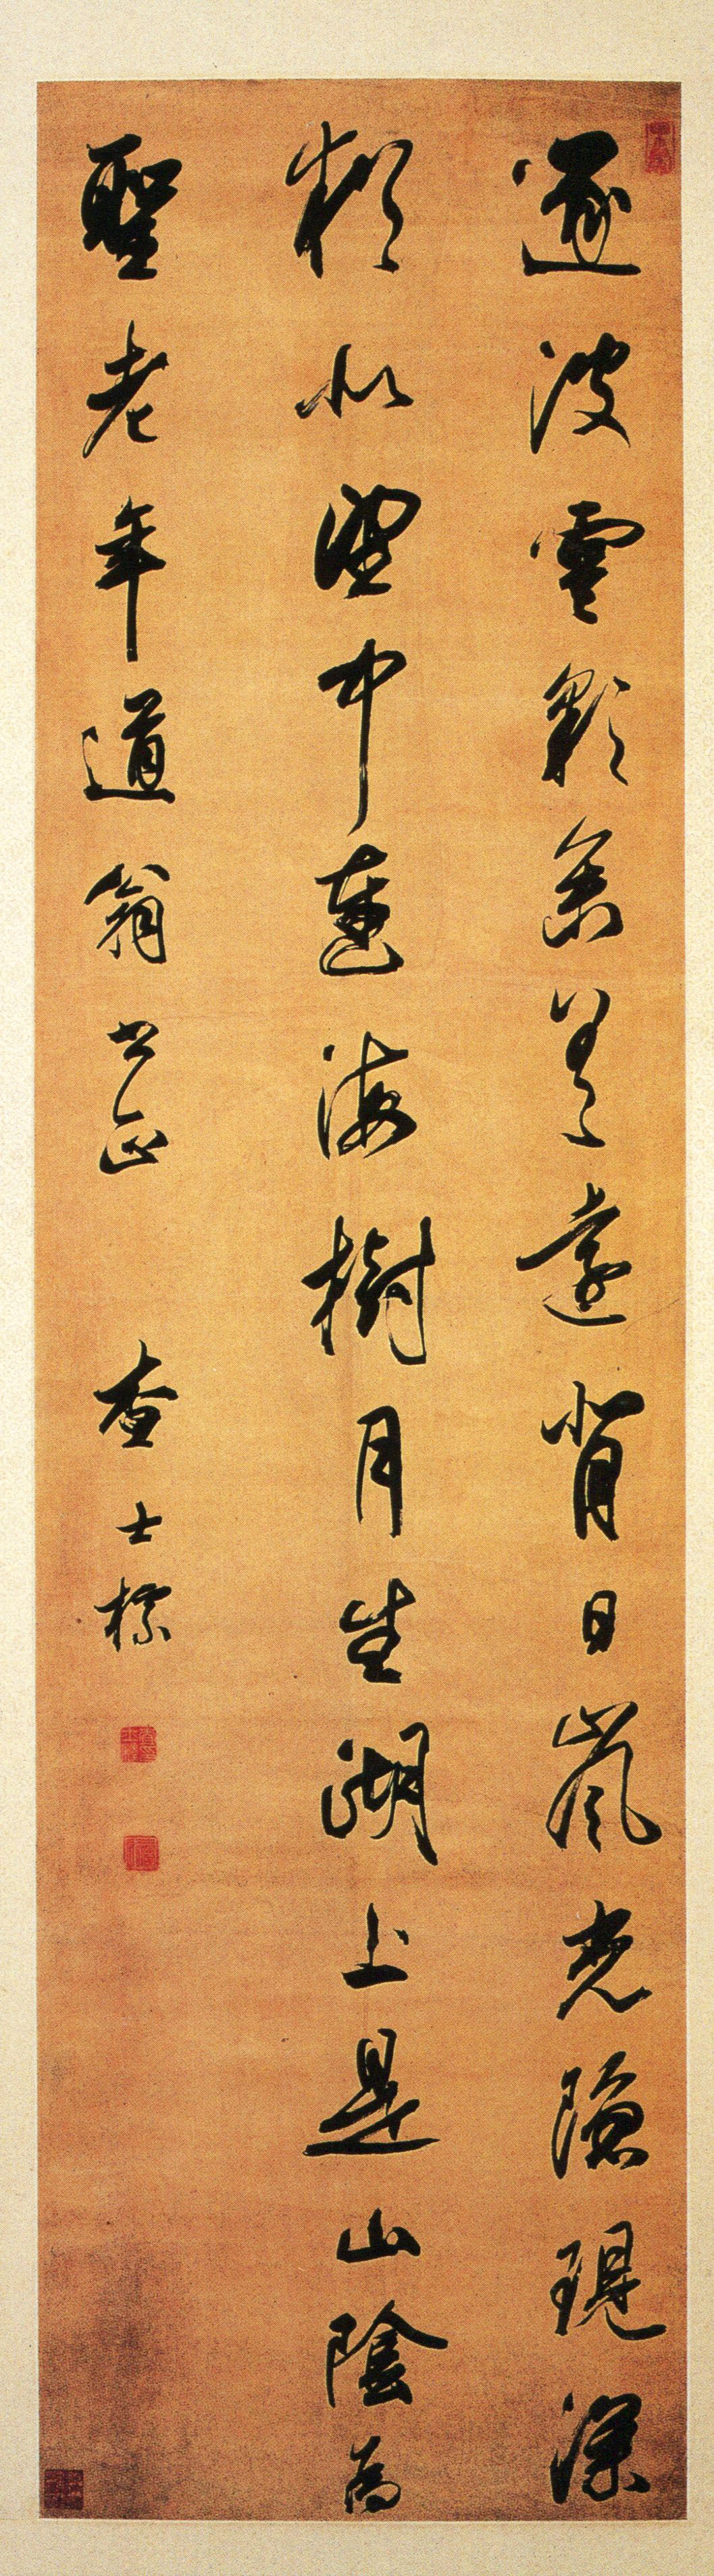 逐波雲影參差遠背日嵐光隱現深
頻似望中連海樹月生湖上是山陰為
聖老年道翁書正 查士標